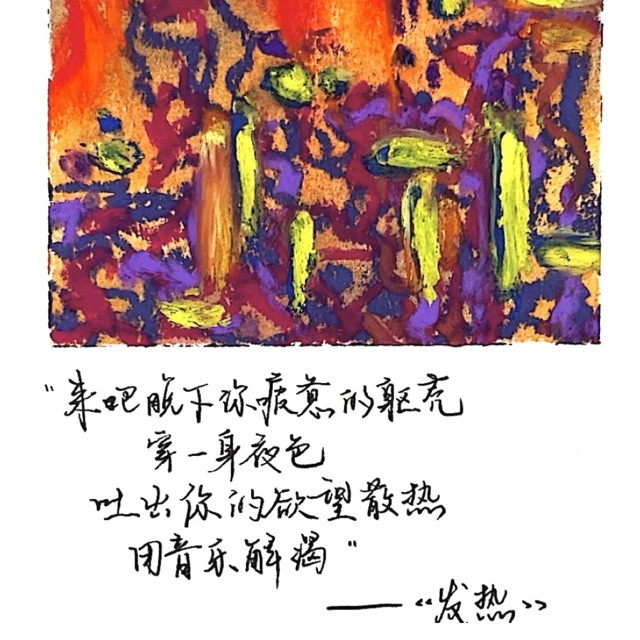 “来吧脱下你疲惫的躯壳
穿一身夜色
吐出你的欲望散热
用音乐解渴”
——《发热》